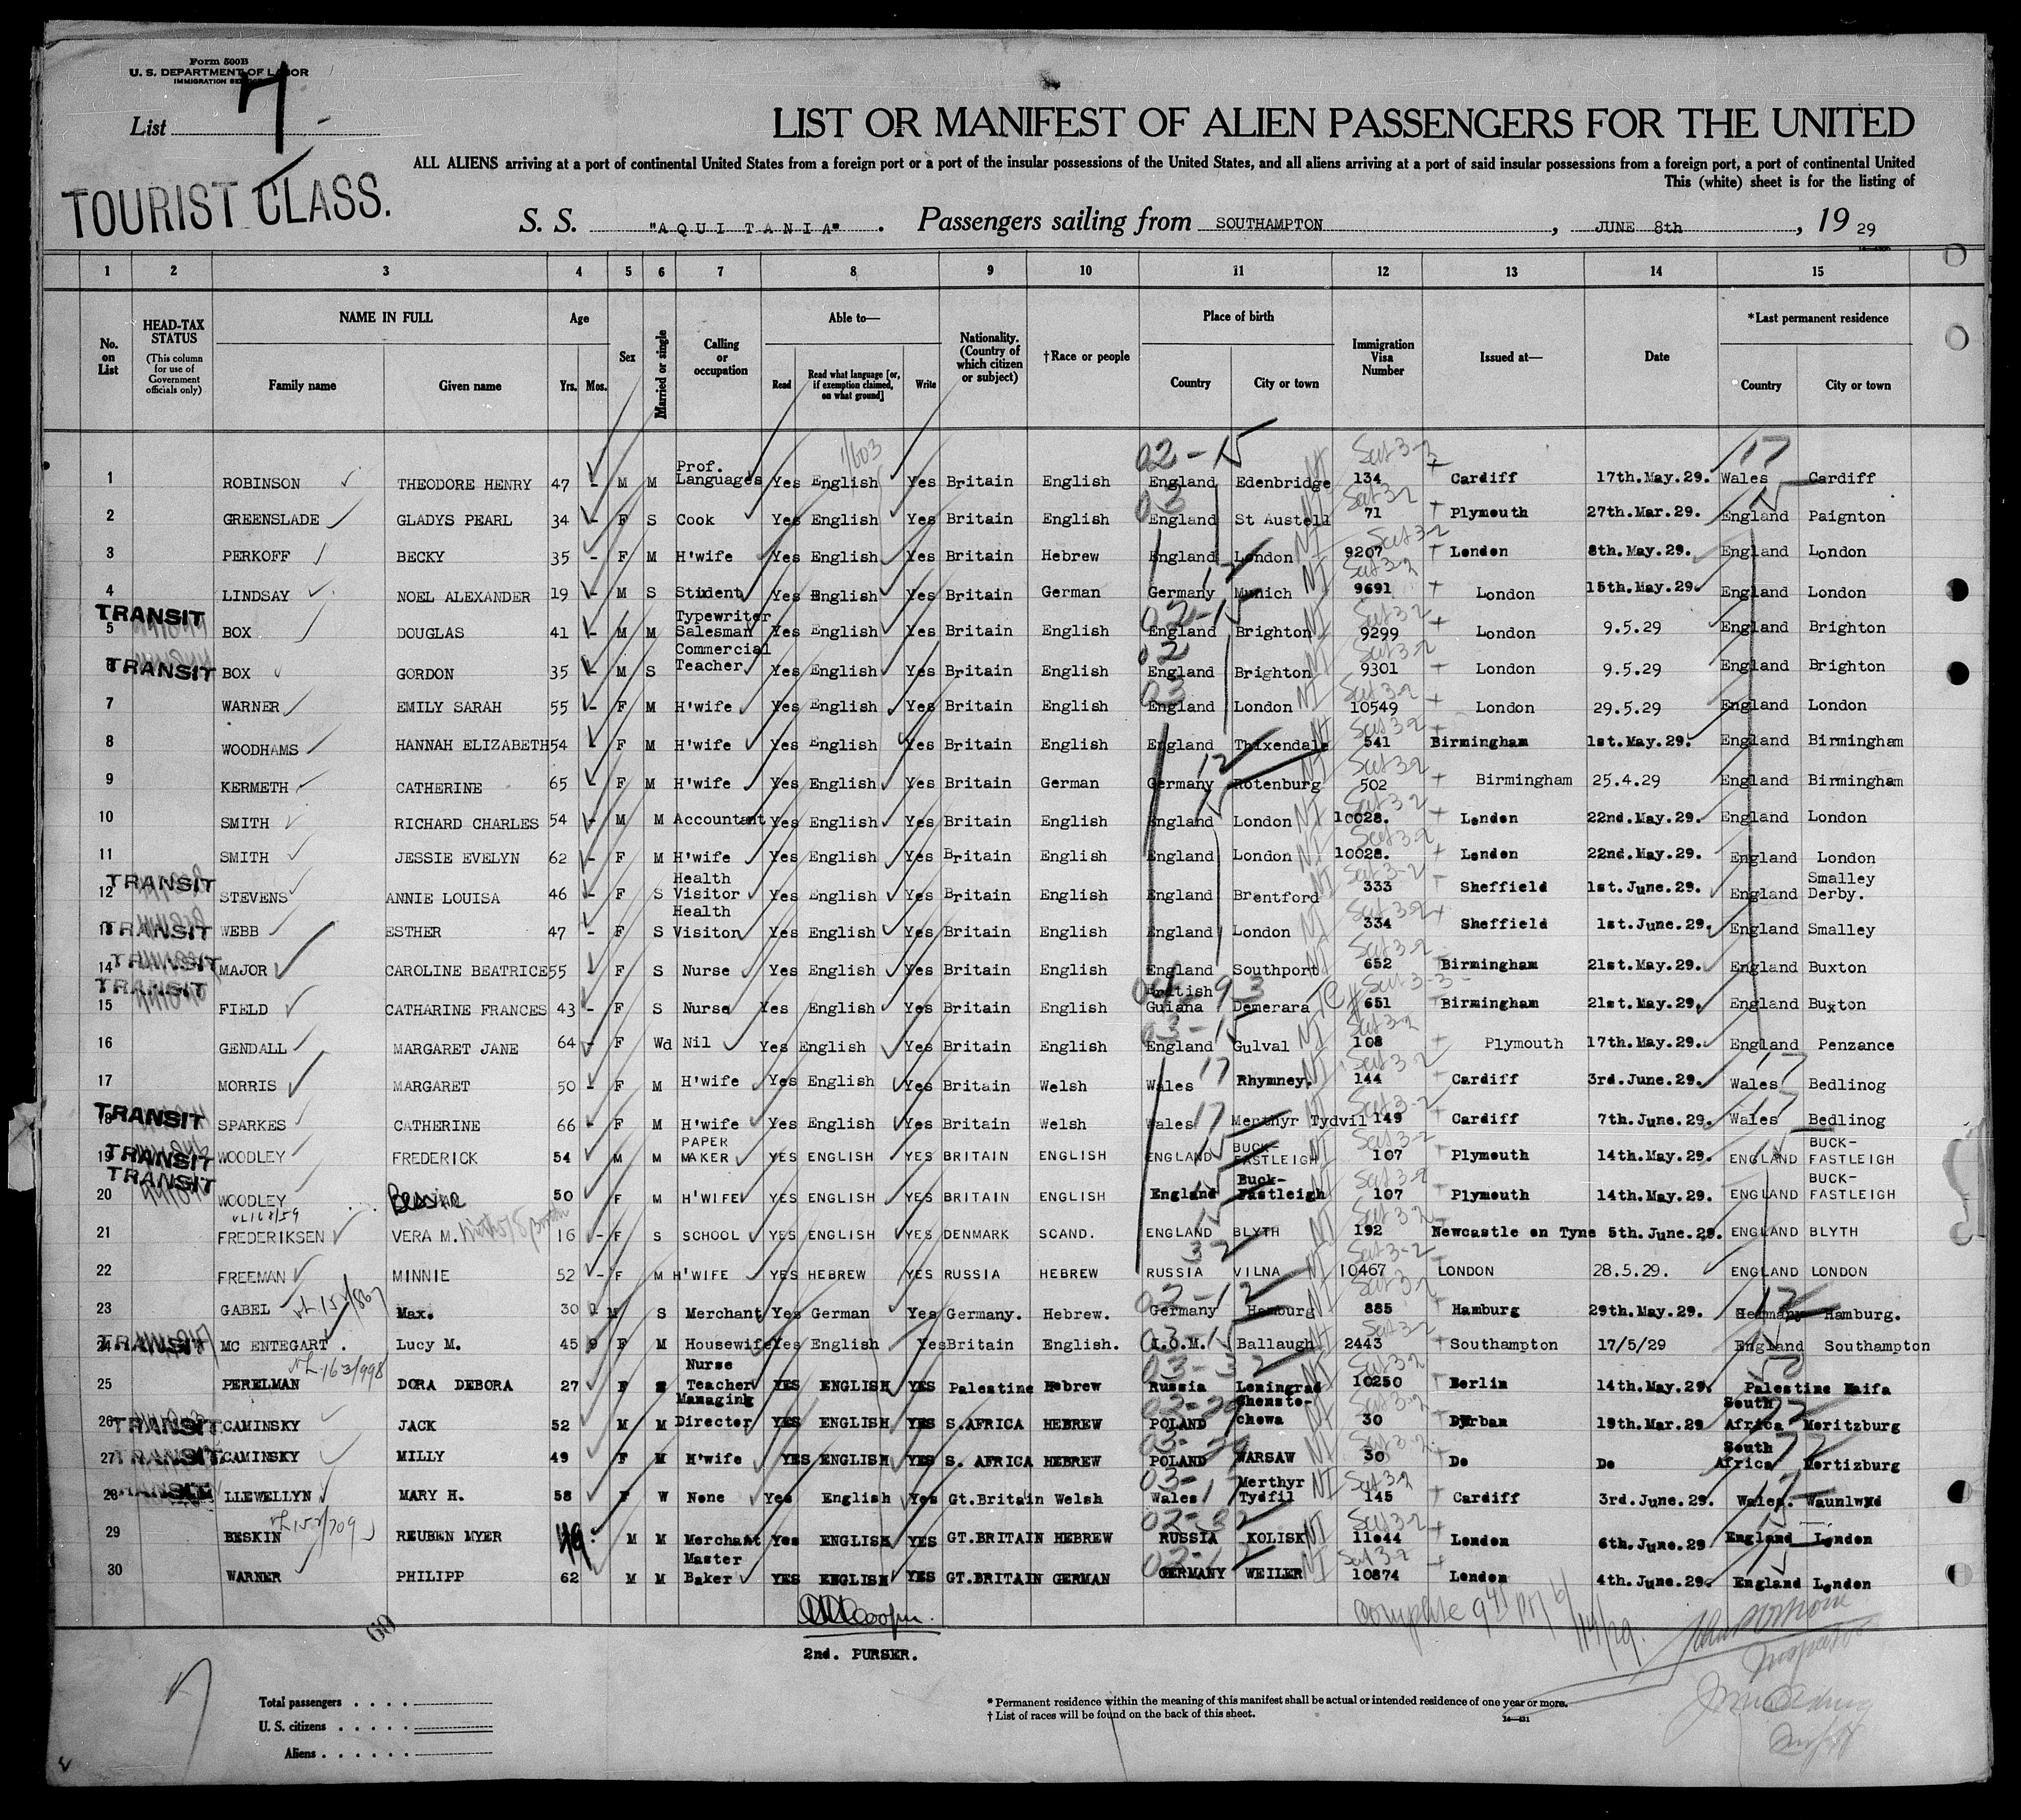 Form 500B
U. S. DEPARTMENT OF LABOR
IMMIGRATION SERVICE
List 7 -
LIST OR MANIFEST OF ALIEN PASSENGERS FOR THE UNITED
ALL ALIENS arriving at a port of continental United States from a foreign port or a port of the insular possessions of the United States, and all aliens arriving at a port of said insular possessions from a foreign port, a port of continental United
This (white) sheet is for the listing of
TOURIST CLASS.
S. S. "AQUITANIA". Passengers sailing from SOUTHAMPTON, JUNE 8th, 19 29
1 2 3 4 5 6 7 8 9 10 11 12 13 14 15
No. on List
HEAD-TAX STATUS (This column for use of Government officials only)
NAME IN FULL Family name Given name
Age Yrs. Mos.
Sex
Married or single
Calling or occupation
Able to— Read Read what language [or, if exemption claimed, on what ground] Write
Nationality. (Country of which citizen or subject)
†Race or people
Place of birth Country City or town
Immigration Visa Number
Issued at—
Date
*Last permanent residence Country City or town
1 ROBINSON THEODORE HENRY 47 - M M Prof. Languages Yes English Yes Britain English England Edenbridge 134 Cardiff 17th.May.29. Wales Cardiff
2 GREENSLADE GLADYS PEARL 34 - F S Cook Yes English Yes Britain English England St Austell 71 Plymouth 27th.Mar.29. England Paignton
3 PERKOFF BECKY 35 - F M H'wife Yes English Yes Britain Hebrew England London 9207 London 8th.May.29. England London
4 LINDSAY NOEL ALEXANDER 19 - M S Student Yes English Yes Britain German Germany Munich 9691 London 15th.May.29. England London
TRANSIT 5 BOX DOUGLAS 41 - M M Typewriter Salesman Yes English Yes Britain English England Brighton 9299 London 9.5.29 England Brighton
TRANSIT 6 BOX GORDON 35 - M S Commercial Teacher Yes English Yes Britain English England Brighton 9301 London 9.5.29 England Brighton
7 WARNER EMILY SARAH 55 - F M H'wife Yes English Yes Britain English England London 10549 London 29.5.29 England London
8 WOODHAMS HANNAH ELIZABETH 54 - F M H'wife Yes English Yes Britain English England Thixendale 541 Birmingham 1st.May.29. England Birmingham
9 KERMETH CATHERINE 65 - F M H'wife Yes English Yes Britain German Germany Rotenburg 502 Birmingham 25.4.29 England Birmingham
10 SMITH RICHARD CHARLES 54 - M M Accountant Yes English Yes Britain English England London 10028. London 22nd.May.29. England London
11 SMITH JESSIE EVELYN 62 - F M H'wife Yes English Yes Britain English England London 10028. London 22nd.May.29. England London
TRANSIT 12 STEVENS ANNIE LOUISA 46 - F S Health Visitor Yes English Yes Britain English England Brentford 333 Sheffield 1st.June.29. England Smalley Derby.
TRANSIT 13 WEBB ESTHER 47 - F S Health Visitor Yes English Yes Britain English England London 334 Sheffield 1st.June.29. England Smalley
TRANSIT 14 MAJOR CAROLINE BEATRICE 55 - F S Nurse Yes English Yes Britain English England Southport 652 Birmingham 21st.May.29. England Buxton
TRANSIT 15 FIELD CATHARINE FRANCES 43 - F S Nurse Yes English Yes Britain English British Guiana Demerara 651 Birmingham 21st.May.29. England Buxton
16 GENDALL MARGARET JANE 64 - F Wd Nil Yes English Yes Britain English England Gulval 108 Plymouth 17th.May.29. England Penzance
17 MORRIS MARGARET 50 - F M H'wife Yes English Yes Britain Welsh Wales Rhymney. 144 Cardiff 3rd.June.29. Wales Bedlinog
TRANSIT 18 SPARKES CATHERINE 66 - F M H'wife Yes English Yes Britain Welsh Wales Merthyr Tydvil 149 Cardiff 7th.June.29. Wales Bedlinog
TRANSIT 19 WOODLEY FREDERICK 54 M M PAPER MAKER YES ENGLISH YES BRITAIN ENGLISH ENGLAND BUCK-FASTLEIGH 107 Plymouth 14th.May.29. ENGLAND BUCK-FASTLEIGH
TRANSIT 20 WOODLEY Bessie 50 F M H'WIFE YES ENGLISH YES BRITAIN ENGLISH England Buck-Fastleigh 107 Plymouth 14th.May.29. ENGLAND BUCK-FASTLEIGH
21 FREDERIKSEN VERA M. 16 - F S SCHOOL YES ENGLISH YES DENMARK SCAND. ENGLAND BLYTH 192 Newcastle on Tyne 5th.June.29. ENGLAND BLYTH
22 FREEMAN MINNIE 52 - F M H'WIFE YES HEBREW YES RUSSIA HEBREW RUSSIA VILNA 10467 LONDON 28.5.29. ENGLAND LONDON
23 GABEL Max. 30 M S Merchant Yes German Yes Germany. Hebrew. Germany Hamburg 885 Hamburg 29th.May.29. Germany Hamburg.
TRANSIT 24 MC ENTEGART. Lucy M. 45 9 F M Housewife Yes English Yes Britain English. I.O.M. Ballaugh 2443 Southampton 17/5/29 England Southampton
25 PERELMAN DORA DEBORA 27 F S Nurse Teacher YES ENGLISH YES Palestine Hebrew Russia Leningrad 10250 Berlin 14th.May.29. Palestine Haifa
TRANSIT 26 CAMINSKY JACK 52 M M Managing Director YES ENGLISH YES S.AFRICA HEBREW POLAND Chensto-chowa 30 Durban 19th.Mar.29 South Africa Moritzburg
TRANSIT 27 CAMINSKY MILLY 49 F M H'wife YES ENGLISH YES S. AFRICA HEBREW POLAND WARSAW 30 Do Do South Africa Mortizburg
TRANSIT 28 LLEWELLYN MARY H. 58 F W None Yes English Yes Gt.Britain Welsh Wales Merthyr Tydfil 145 Cardiff 3rd.June.29. Wales. Waunlwyd
29 BESKIN REUBEN MYER 49. M M Merchant Yes ENGLISH YES GT.BRITAIN HEBREW RUSSIA KOLISK 11044 London 6th.June.29 England London
30 WARNER PHILIPP 62 M M Master Baker YES ENGLISH YES GT.BRITAIN GERMAN GERMANY WEILER 10874 London 4th.June.29. England London
2nd. PURSER.
Total passengers
U. S. citizens
Aliens
* Permanent residence within the meaning of this manifest shall be actual or intended residence of one year or more.
† List of races will be found on the back of this sheet.